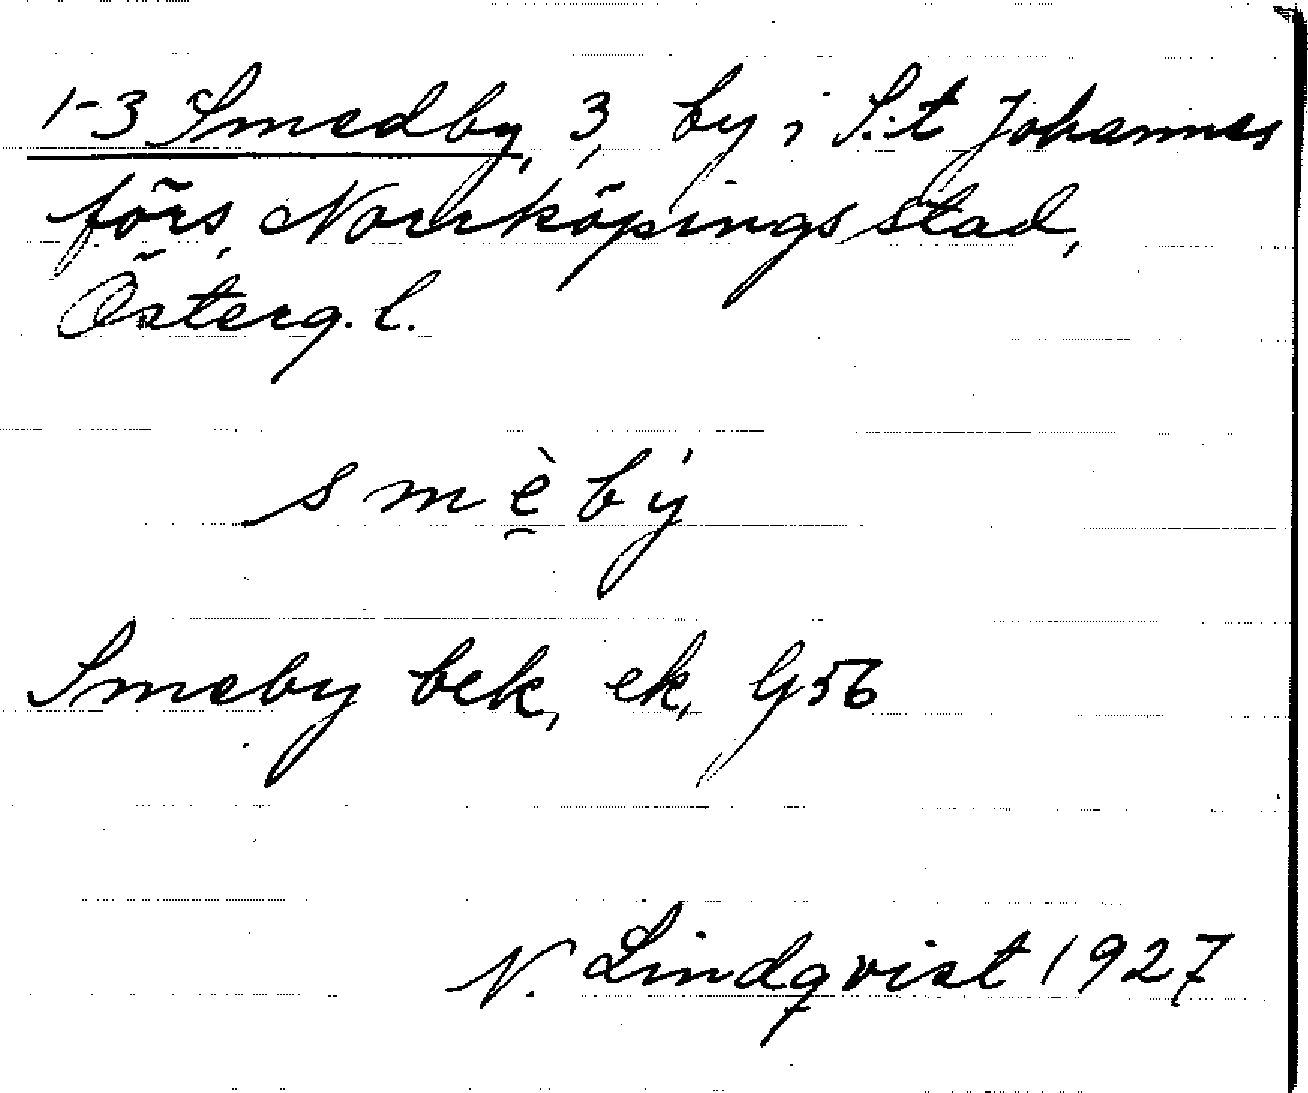 1-3 Smedby, 3, by i S:t Johannes
förs, Norrköpings stad,
Österg. l.
smè̯bý
Smeby bek, ek, G56
N. Lindqvist 1927